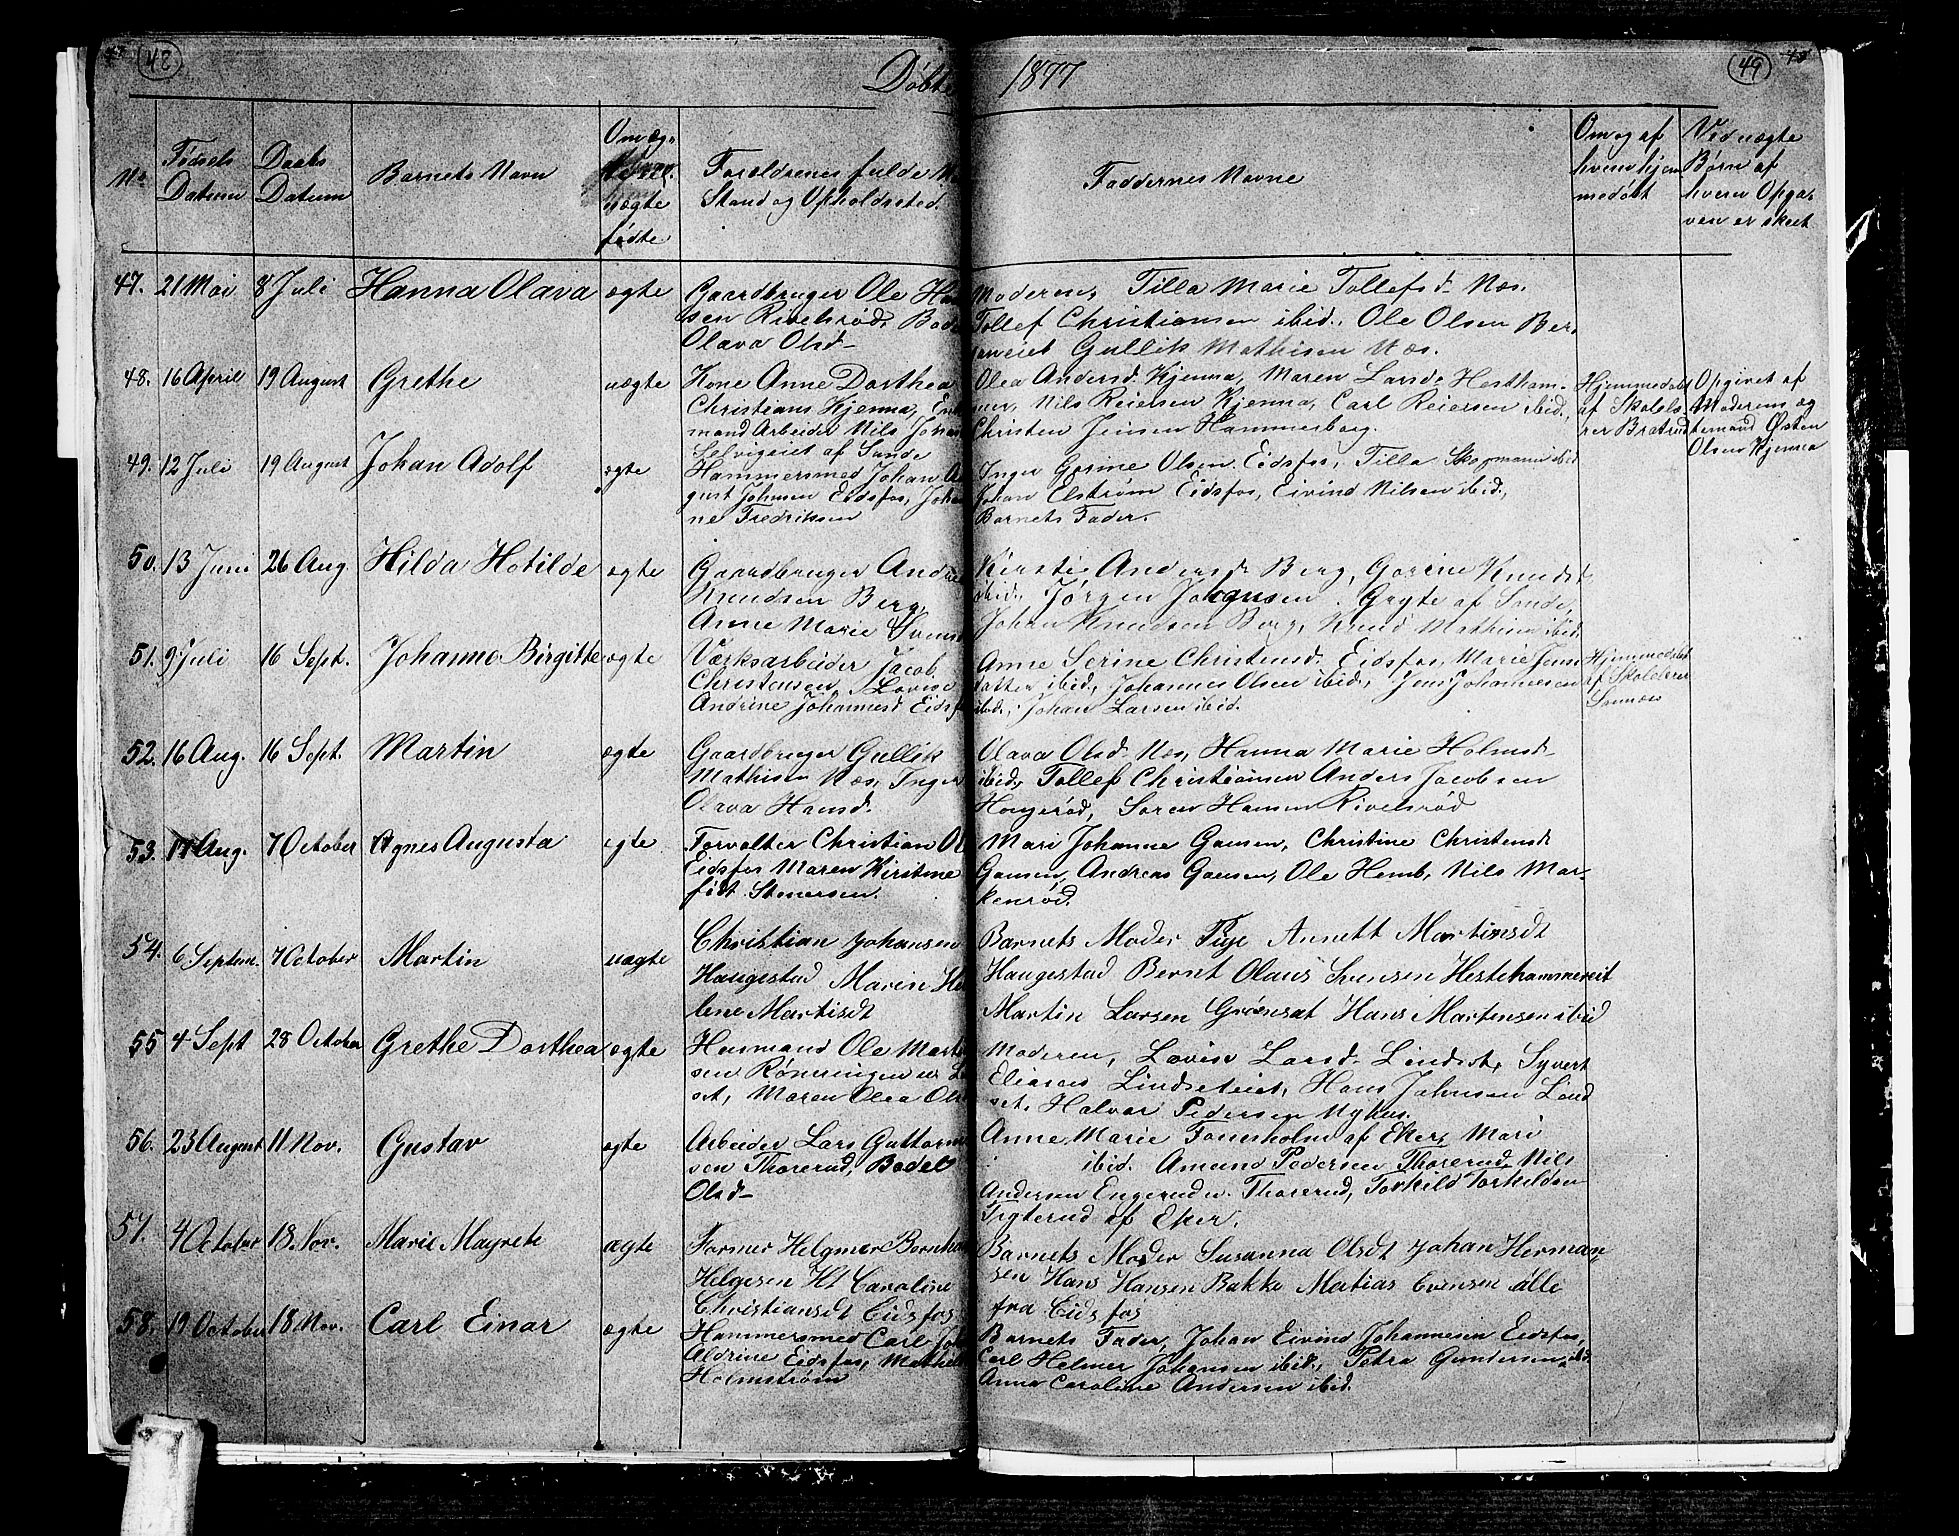 48
49
Døbte 1877
No
Fødsels
Datum
Daabs
Datum
Barnets Navn
Om æg-
te eller
uægte
fødte
Forældrenes fulde
Stand og Opholdssted.
Faddernes Navne
Om og af
hvem hjem
medøbt
Ved uægte
Børn af
hvem Opga-
ven er skeet
47. 21 Mai 8 Juli Hanna Olava ægte
Gaardbruger Ole Han
sen Rivelsrød, Bod
Olava Olsd.
Moderen, Tilla Marie Tollefsd. Næs.
Tollef Christiansen ibid., Ole Olsen Ber-
Gullik Mathisen Næs.
48. 16 April 19 August Grethe uægte
Kone Anne Dorthea
Christians Kjenna, Enk
mand Arbeider Nils Johan
Selvigeiet af Sande
Olea Andersd. Kjenna, Maren Larsd. Hestham-
mer, Nils Reiersen Kjenna, Carl Reiersen ibid.,
Christen Jensen Hammerborg.
Hjemmedøbt
af Skolelæ-
rer Bratrud
Opgivet af
Moderens æg
temand Østen
Olsen Kjenna
49. 12 Juli 19 August Johan Adolf ægte
Hammersmed Johan A
gust Johnsen Eidsfos, Joha
ne Fredriksen
Inger Gorine Olsen Eidsfos, Tilla Skogmann ibid
Johan Elstrøm Eidsfos, Eivind Nilsen ibid.,
Barnets Fader.
50. 13 Juni 26 Aug. Hilda Hotilde ægte
Gaardbruger Andre
Knudsen Berg,
Anne Marie Svens
Kirstie Andersd. Berg, Gorine Knudsd.
ibid., Jørgen Johansen Gryte af Sande,
Johan Knudsen Berg, Knud Mathisen ibid.
51. 9 Juli 16 Sept. Johanne Birgitte ægte
Værksarbeider Jacob
Christensen, Lovise
Andrine Johannesd. Eidsf
Anne Serine Christensd. Eidsfos, Marie Jens
datter ibid., Johannes Olsen ibid., Jens Johannesen
ibid., Johan Larsen ibid.
Hjemmedøbt
af Skolelærer
52. 16 Aug. 16 Sept. Martin ægte
Gaardbruger Gullik
Mathisen Næs, Inger
Olava Hansd.
Olava Olsd. Næs, Hanna Marie Holmsd.
ibid., Tollef Christiansen Anders Jacobsen
Hougerød, Søren Hansen Rivelsrød
53. 17 Aug. 7 October Agnes Augusta ægte
Forvalter Christian Ol
Eidsfos Maren Kirstine
født Stenersen.
Mari Johanne Gausen, Christine Christensd.
Gausen, Andreas Gausen, Ole Hemb, Nils Mør-
kenrød.
54. 6 Septem. 7 October Martin uægte
Christian Johansen
Haugestad Maren He
lene Martisdt
Barnets Moder Pige Annett Martinsdt
Haugestad Bernt Olaus Svensen Hestehammereiet
Martin Larsen Grønsat Hans Martensen ibid
55 4 Sept 28 October Grethe Dorthea ægte
Husmand Ole Mort
sen Rønningen u. L
set, Maren Olea Ols
Moderen, Lovise Larsd. Lindset, Syvert
Eliasen Lindseteiet, Hans Johnsen Lind
set, Halvor Pedersen Nyhus.
56. 23 August 11 Nov. Gustav ægte
Arbeider Lars Guttorm
sen Thorerud, Bodel
Olsd.
Anne Marie Fouesholm af Eker, Mari
ibid. Amund Pedersen Thorerud, Nils
Andersen Engerud u. Thorerud, Torkild Torkildsen
Tigterud af Eker.
57. 4 October 18. Nov. Marie Magrete ægte
Former Helgmer Bernha
Helgesen Ht Caroline
Christiansdt Eidsfos
Barnets Moder Susanna Olsdt Johan Herman-
sen Hans Hansen Bakke Matias Evensen alle
fra Eidsfos
58. 19 October 18 Nov. Carl Einar ægte
Hammersmed Carl Joh
Aldrine Eidsfos, Mathil
Holmstrøm
Barnets Fader, Johan Eivind Johannesen Eidsfos,
Carl Helmer Johansen ibid., Petra Gundersen ibid.
Anna Caroline Andersen ibid.